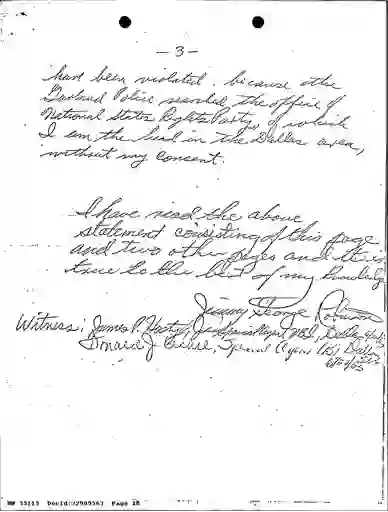 — 3 —
have been violated. because the
Garland Police searched the office of
National States Rights Party, of which
I am the head in the Dallas area,
without my consent.
I have read the above
statement consisting of this page
and two other pages and it is
true to the best of my knowledge
Jimmy George Robinson
Witness: James P. Special Agent, FBI, Dallas
Donald J. Special Agent Dallas
DocId: Page